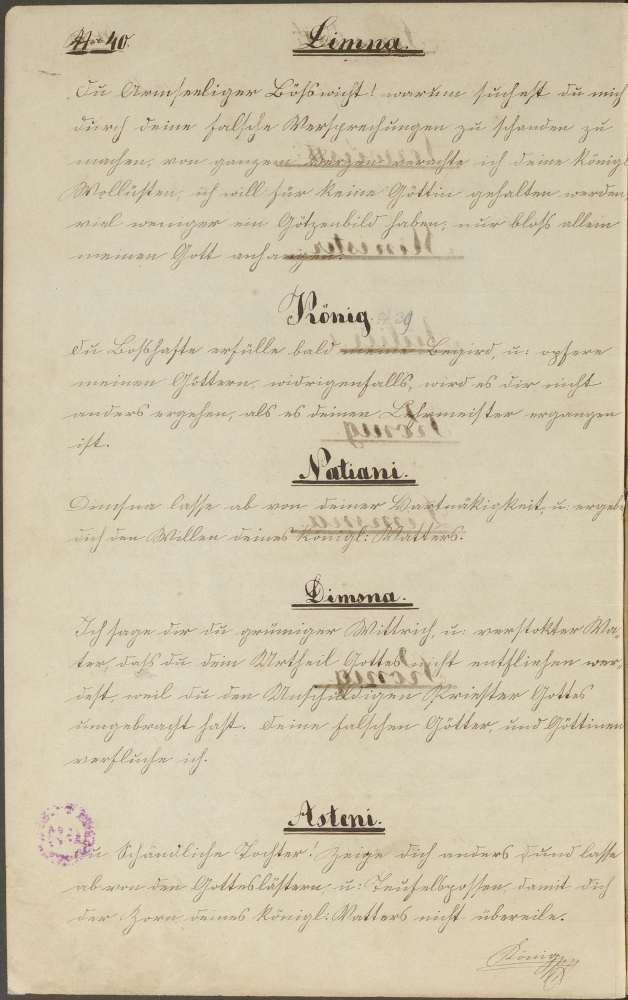 Nro 40.
Dimna.
Du Armseeliger Bößwicht! warum suchest du mich
durch deine falsche Versprechungen zu schanden zu
machen, von ganzem Herzen verachte ich deine Königl
Wollüsten, ich will für keine Göttin gehalten werden
viel weniger ein Götzenbild haben, nur bloß allein
meinen Gott anhangen.
König.
39
du Boßhafte erfülle bald meine Begird, u: opfere
meinen Göttern, widrigenfalls, wird es dir nicht
anders ergehen, als es deinen Lehrmeister ergangen
ist.
Natiani.
Dimsna lasse ab von deiner Hartnäkigkeit, u: ergebe
dich den Willen deines Königl: Vatters.
Dimsna.
Ich sage dir du grimiger Wittrich, u: verstokter Va-
ter, daß du dem Urtheil Gottes nicht entfliehen wer-
dest, weil du den Unschuldigen Priester Gottes
umgebracht hast. deine falschen Götter, und Göttinen
verfluche ich.
Asteni.
Du Schändliche Tochter! zeige dich anders, und lasse
ab von den Gotteslästern, u: Teufelspossen, damit dich
der Zorn deines Königl: Vatters nicht übereile.
König